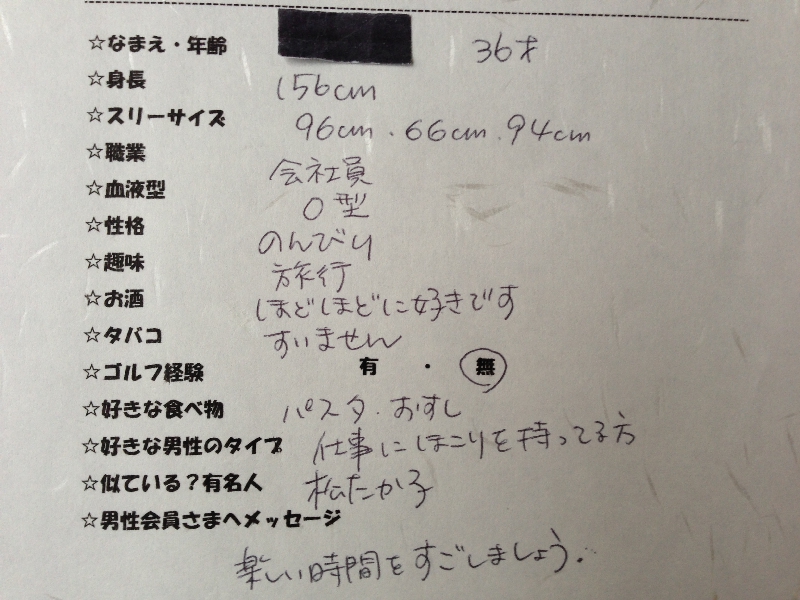 ☆なまえ・年齢 36才
☆身長 156cm
☆スリーサイズ 96cm・66cm・94cm
☆職業 会社員
☆血液型 O型
☆性格 のんびり
☆趣味 旅行
☆お酒 ほどほどに好きです
☆タバコ すいません
☆ゴルフ経験 有・無
☆好きな食べ物 パスタ・おすし
☆好きな男性のタイプ 仕事にほこりを持ってる方
☆似ている？有名人 松たか子
☆男性会員さまへメッセージ
楽しい時間をすごしましょう。